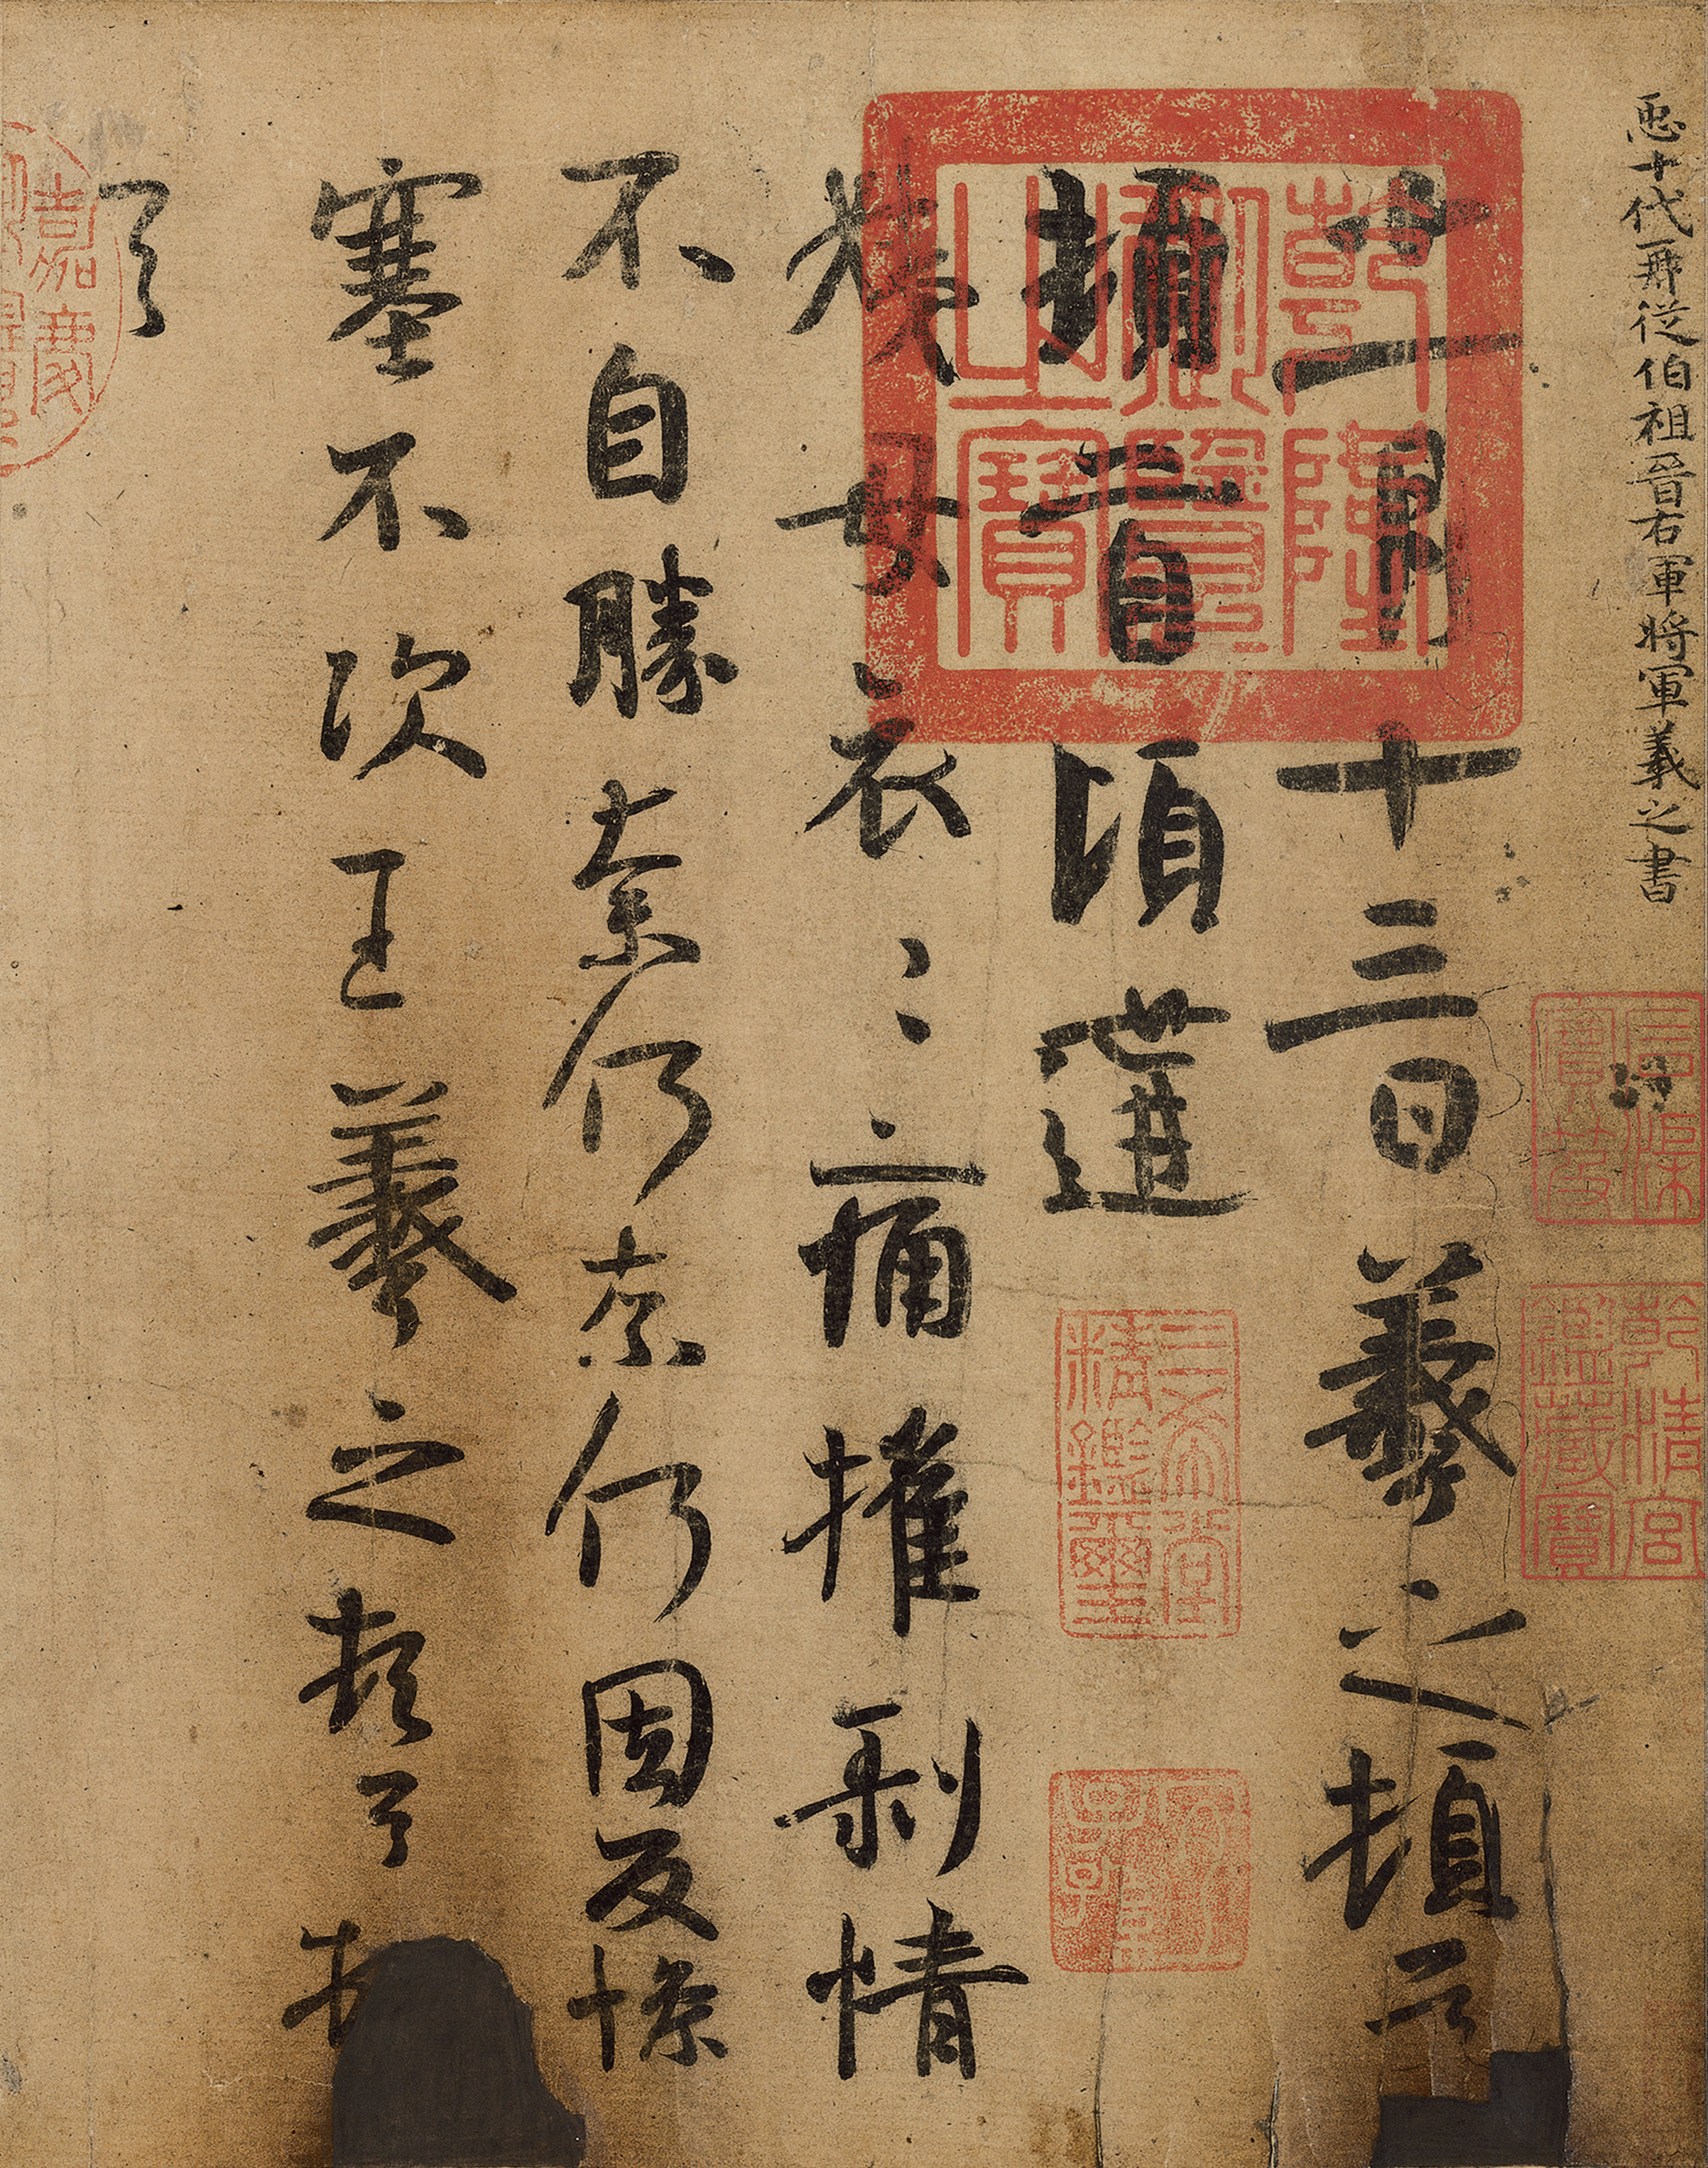 𢘑十代再從伯祖晉右軍將軍羲之書
石渠寶笈
乾清宮鑑藏寶
乾隆御覽之寶
十一月十三日羲之頓首
頓首頃遘
三希堂精鑑璽
姨母哀〻痛摧剝情
不自勝奈何奈何因反慘
塞不次王羲之頓首
首
嘉慶